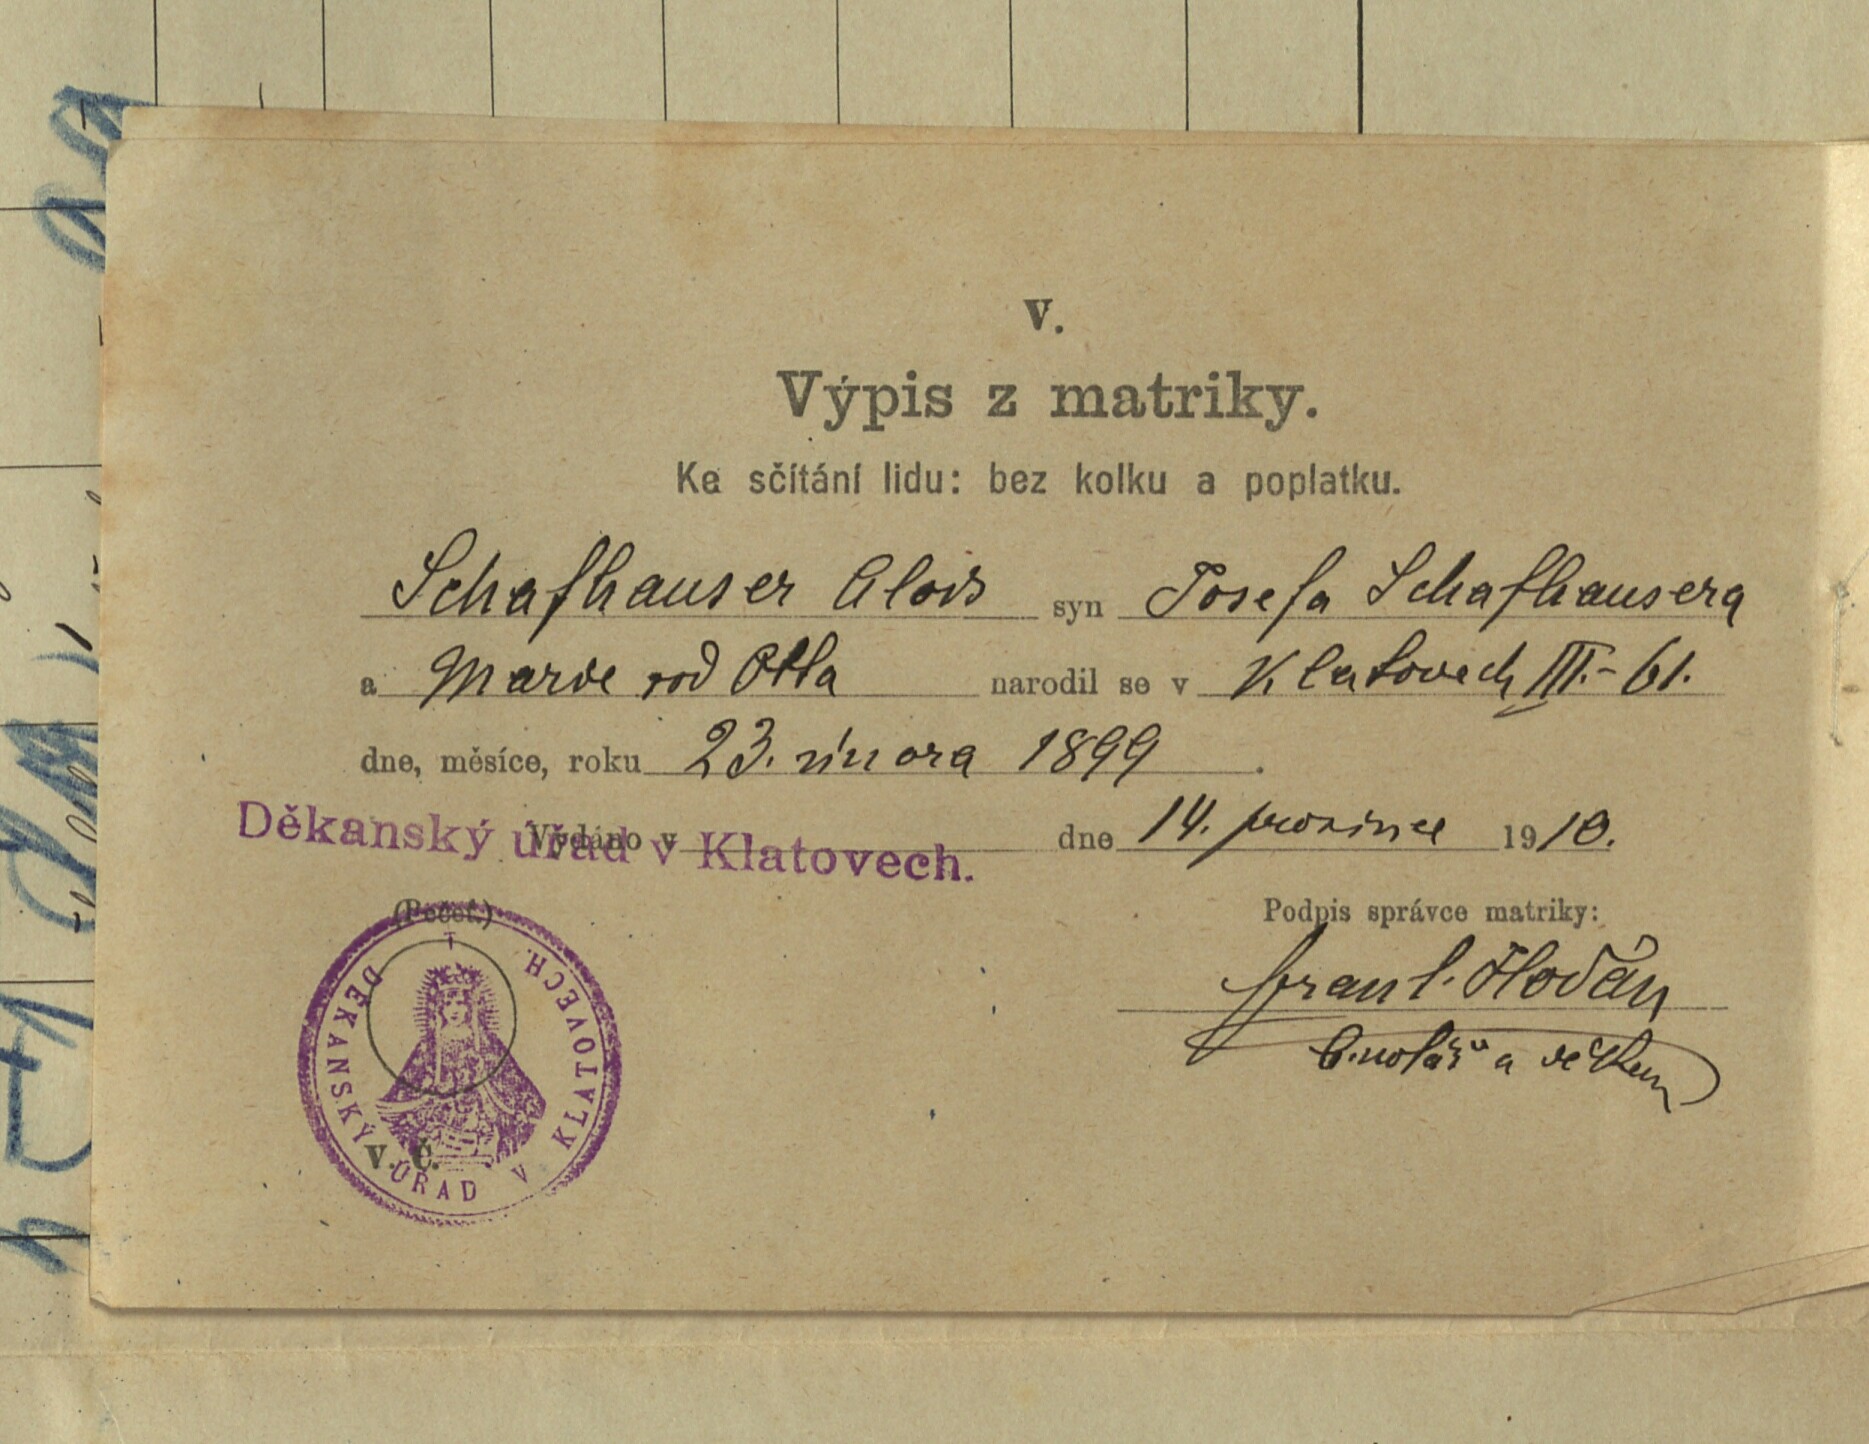 V.
Výpis z matriky.
Ke sčítání lidu: bez kolku a poplatku.
Schafhauser Alois syn Josefa Schafhausera
a Marie rod Otta narodil se v Klatovech III.- 61.
dne, měsíce, roku 23. února 1899.
Děkanský úřad v Klatovech.
Vydáno v dne 14. prosince 1910.
(Pečeť.)
Podpis správce matriky:
DĚKANSKÝ ÚŘAD V KLATOVECH.
V. Č.
Hodán
a děkan